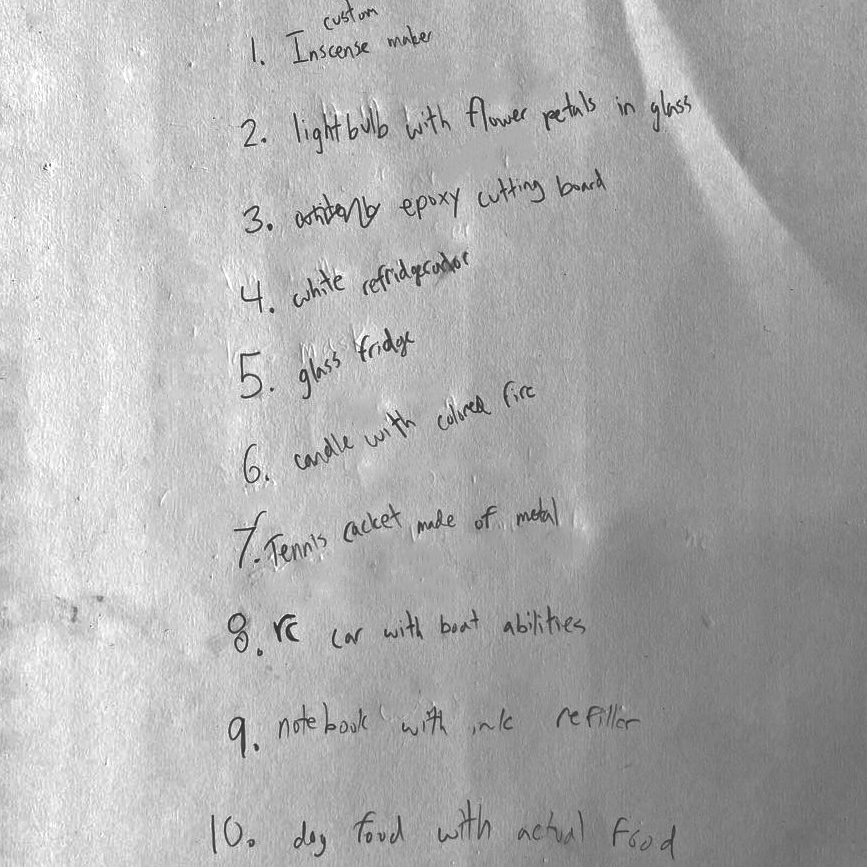 custom
1. Inscense maker
2. lightbulb with flower petals in glass
3. epoxy cutting board
4. white refridgerador
5. glass fridge
6. candle with colored fire
7. Tennis racket made of metal
8. rc car with boat abilities
9. notebook with ink refiller
10. dog food with actual food